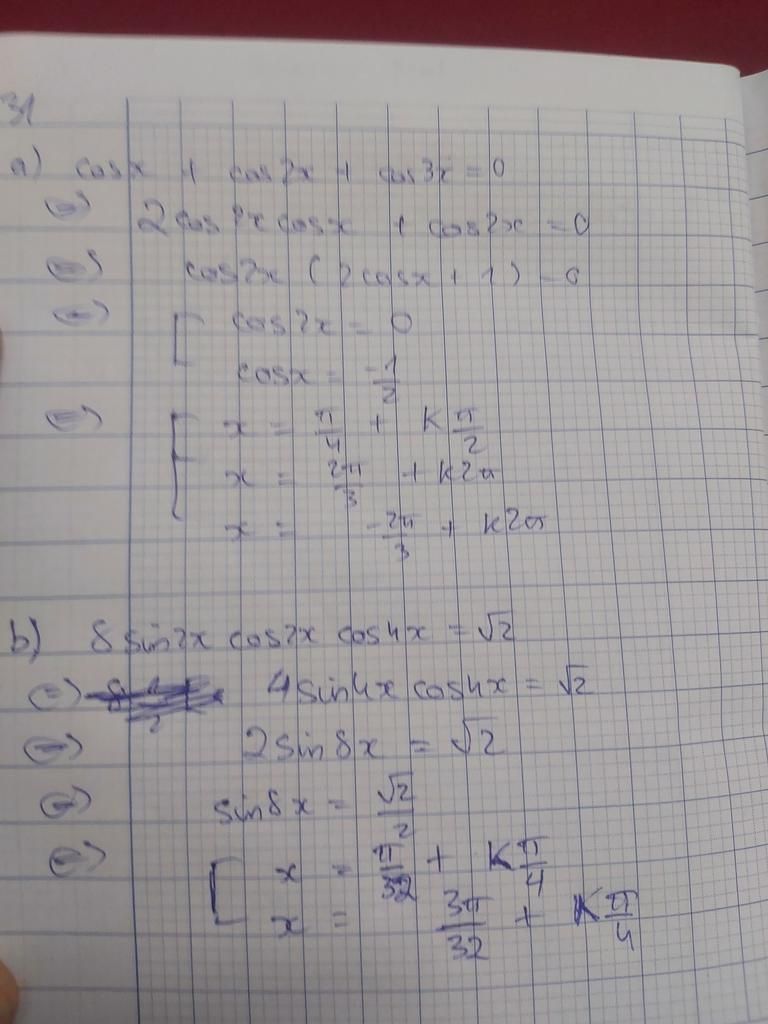 31
a) cosx + cos2x + cos3x = 0
⇔ 2cos2x cosx + cos2x = 0
⇔ cos2x (2cosx + 1) = 0
⇔ [ cos2x = 0
cosx = -1/2
⇔ [ x = π/4 + K π/2
x = 2π/3 + K2π
x = -2π/3 + K2π
b) 8 sin2x cos2x cos4x = √2
⇔ 4 sin4x cos4x = √2
⇔ 2 sin8x = √2
⇔ sin8x = √2/2
⇔ [ x = π/32 + K π/4
x = 3π/32 + K π/4